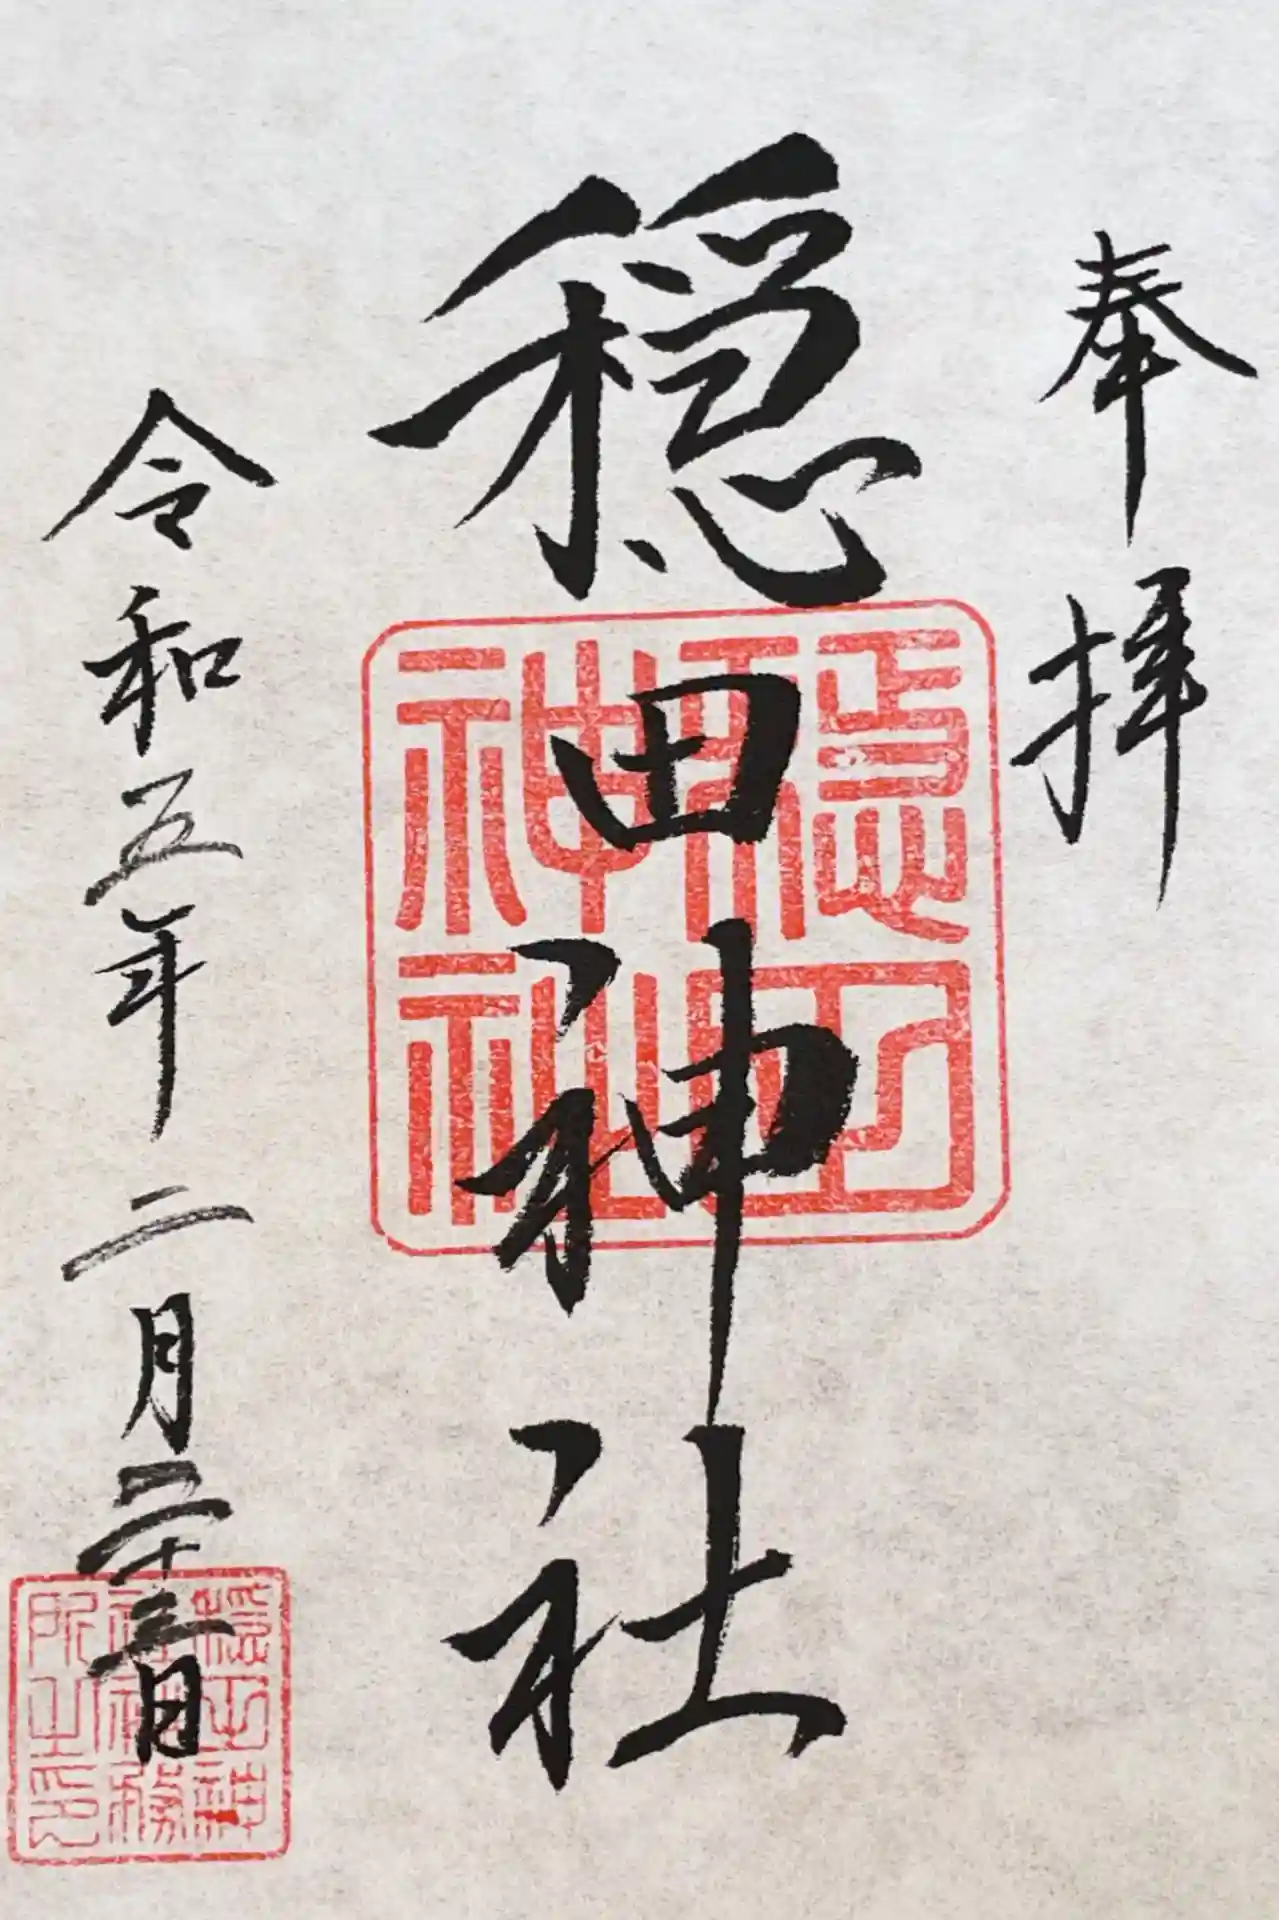 奉拝
穏田神社
穏田
神社
令和五年二月二十三日
穏田神
社社務
所之印